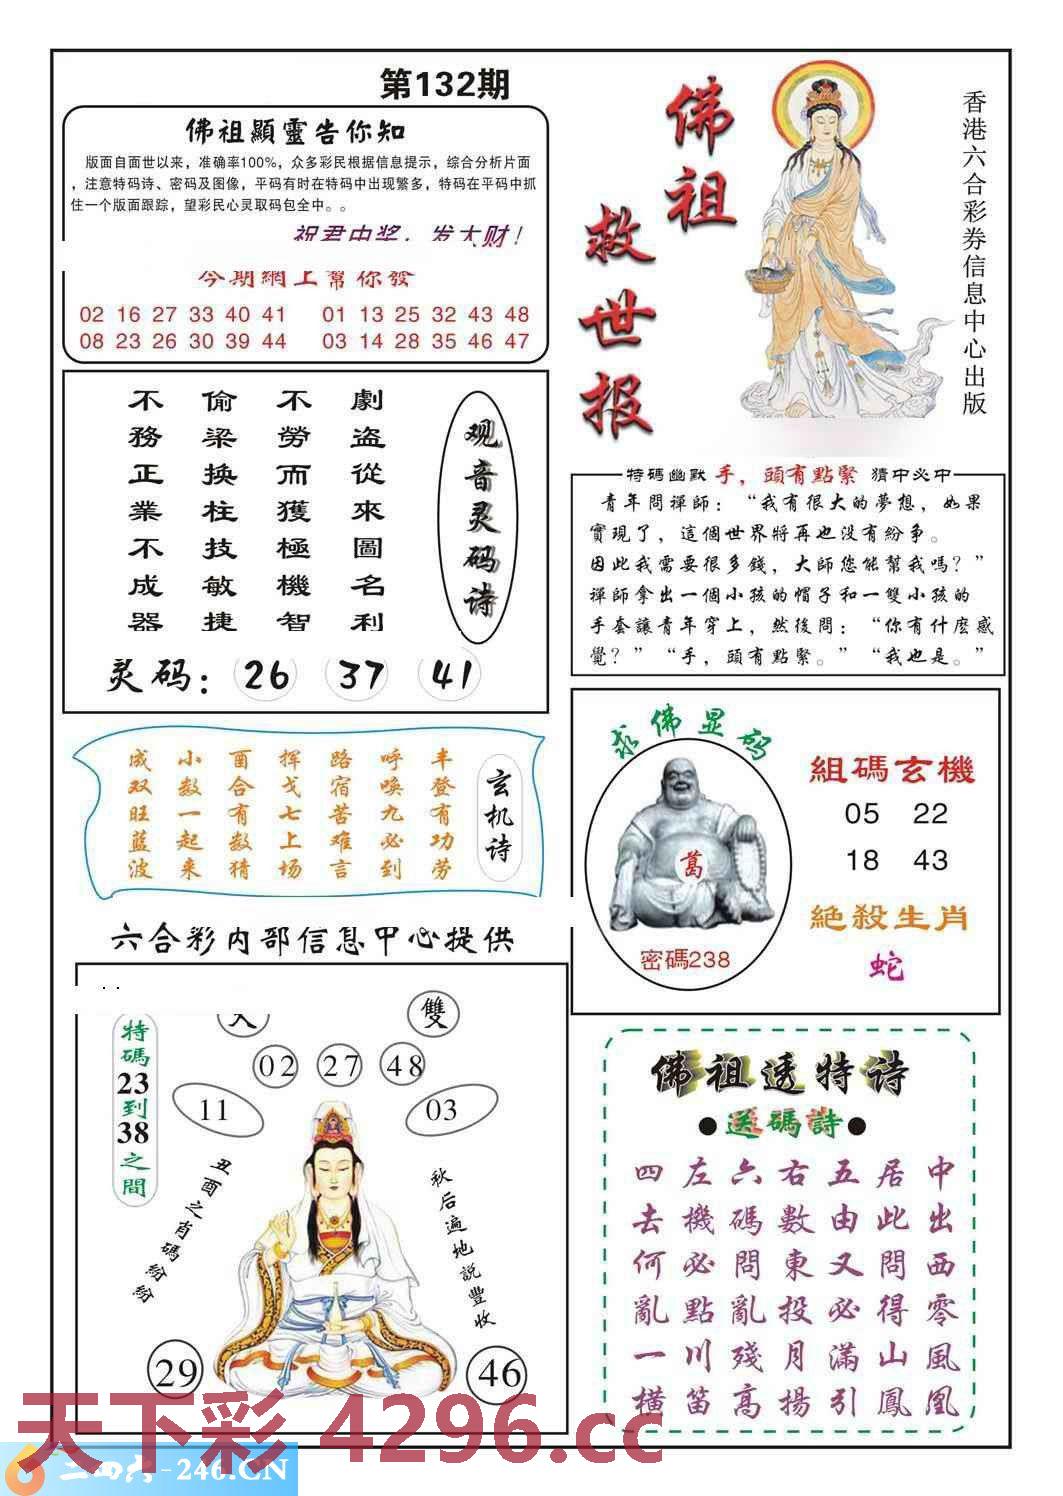 第132期
佛祖顯靈告你知
版面自面世以来，准确率100%，众多彩民根据信息提示，综合分析片面
，注意特码诗、密码及图像，平码有时在特码中出现繁多，特码在平码中抓
住一个版面跟踪，望彩民心灵取码包全中。。
祝君中奖，发大财！
今期網上幫你發
02 16 27 33 40 41 01 13 25 32 43 48
08 23 26 30 39 44 03 14 28 35 46 47
佛祖
救世报
香港六合彩券信息中心出版
观音灵码诗
劇盗從來圖名利
不勞而獲極機智
偷梁换柱技敏捷
不務正業不成器
灵码：26 37 41
特碼幽默 手，頭有點緊 猜中必中
青年問禪師：“我有很大的夢想，如果
實現了，這個世界將再也没有紛争。
因此我需要很多錢，大師您能幫我嗎？”
禪師拿出一個小孩的帽子和一雙小孩的
手套讓青年穿上，然後問：“你有什麽感
覺？”“手，頭有點緊。”“我也是。”
玄机诗
丰登有功劳
呼唤九必到
路宿苦难言
挥戈七上场
酉合有数猜
小数一起来
成双旺蓝波
求佛显码
葛
密碼238
組碼玄機
05 22
18 43
絕殺生肖
蛇
六合彩内部信息中心提供
特碼23到38之間
大 雙
02 27 48
11 03
丑酉之肖碼紛紛
秋后遍地説豐收
29 46
佛祖透特诗
●送碼詩●
中出西零風凰
居此問得山鳳
五由又必滿引
右數東投月揚
六碼問亂殘高
左機必點川笛
四去何亂一横
天下彩 4296.cc
二四六-246.CN